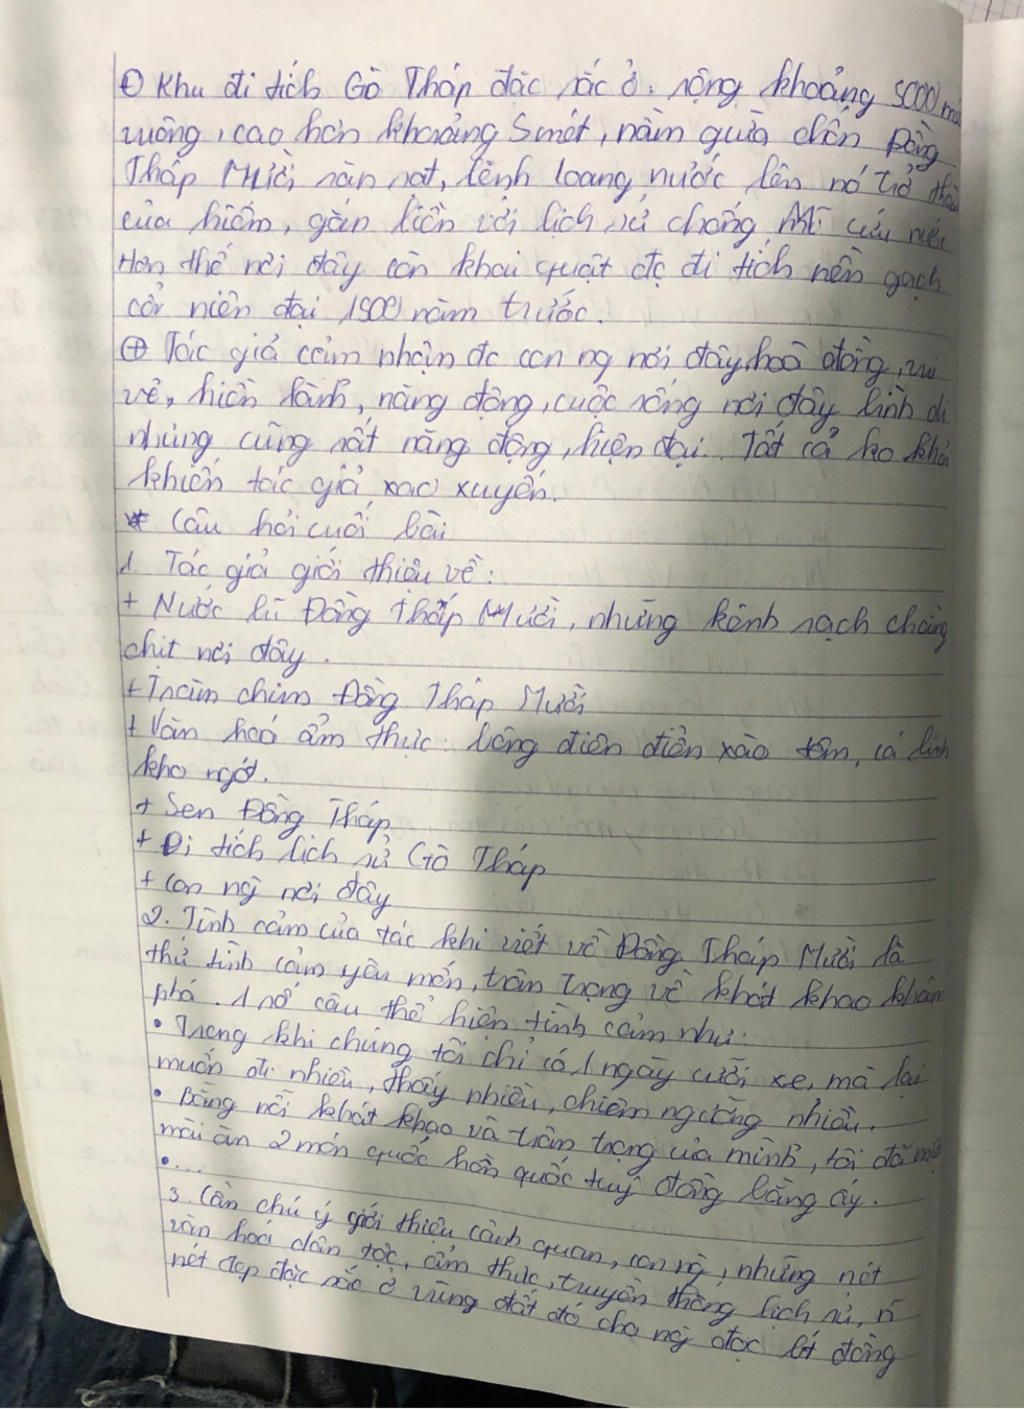 ⊕ Khu di tích Gò Tháp đặc sắc ở: rộng khoảng 5000 mét
vuông, cao hơn khoảng 5 mét, nằm giữa chốn Đồng
Tháp Mười sàn sạt, lênh loang nước lên nó trở thành
của hiếm, gắn liền với lịch sử chống Mĩ cứu nước
Hơn thế nơi đây còn khai quật đc di tích nền gạch
cổ niên đại 1500 năm trước.
⊕ Tác giả cảm nhận đc con ng nơi đây hoà đồng, vui
vẻ, hiền lành, năng động, cuộc sống nơi đây bình dị
nhưng cũng rất năng động, hiện đại. Tất cả ko khỏi
khiến tác giả xao xuyến.
* Câu hỏi cuối bài
1. Tác giả giới thiệu về:
+ Nước lũ Đồng Tháp Mười, những kênh rạch chằng
chịt nơi đây.
+ Tràm chim Đồng Tháp Mười
+ Văn hoá ẩm thực: bông điên điển xào tôm, cá linh
kho ngót.
+ Sen Đồng Tháp
+ Di tích lịch sử Gò Tháp
+ Con ng nơi đây
2. Tình cảm của tác khi viết về Đồng Tháp Mười là
thứ tình cảm yêu mến, trân trọng về khát khao khám
phá. 1 số câu thể hiện tình cảm như:
• Trong khi chúng tôi chỉ có 1 ngày cưỡi xe, mà lại
muốn đi nhiều, thấy nhiều, chiêm ngưỡng nhiều.
• Bằng nỗi khát khao và trân trọng của mình, tôi đã
mải ăn 2 món quốc hồn quốc tuý đồng bằng ấy.
•...
3. Cần chú ý giới thiệu cảnh quan, con ng, những nét
văn hoá dân tộc, ẩm thực, truyền thống lịch sử,
nét đẹp đặc sắc ở vùng đất đó cho ng đọc bt đồng